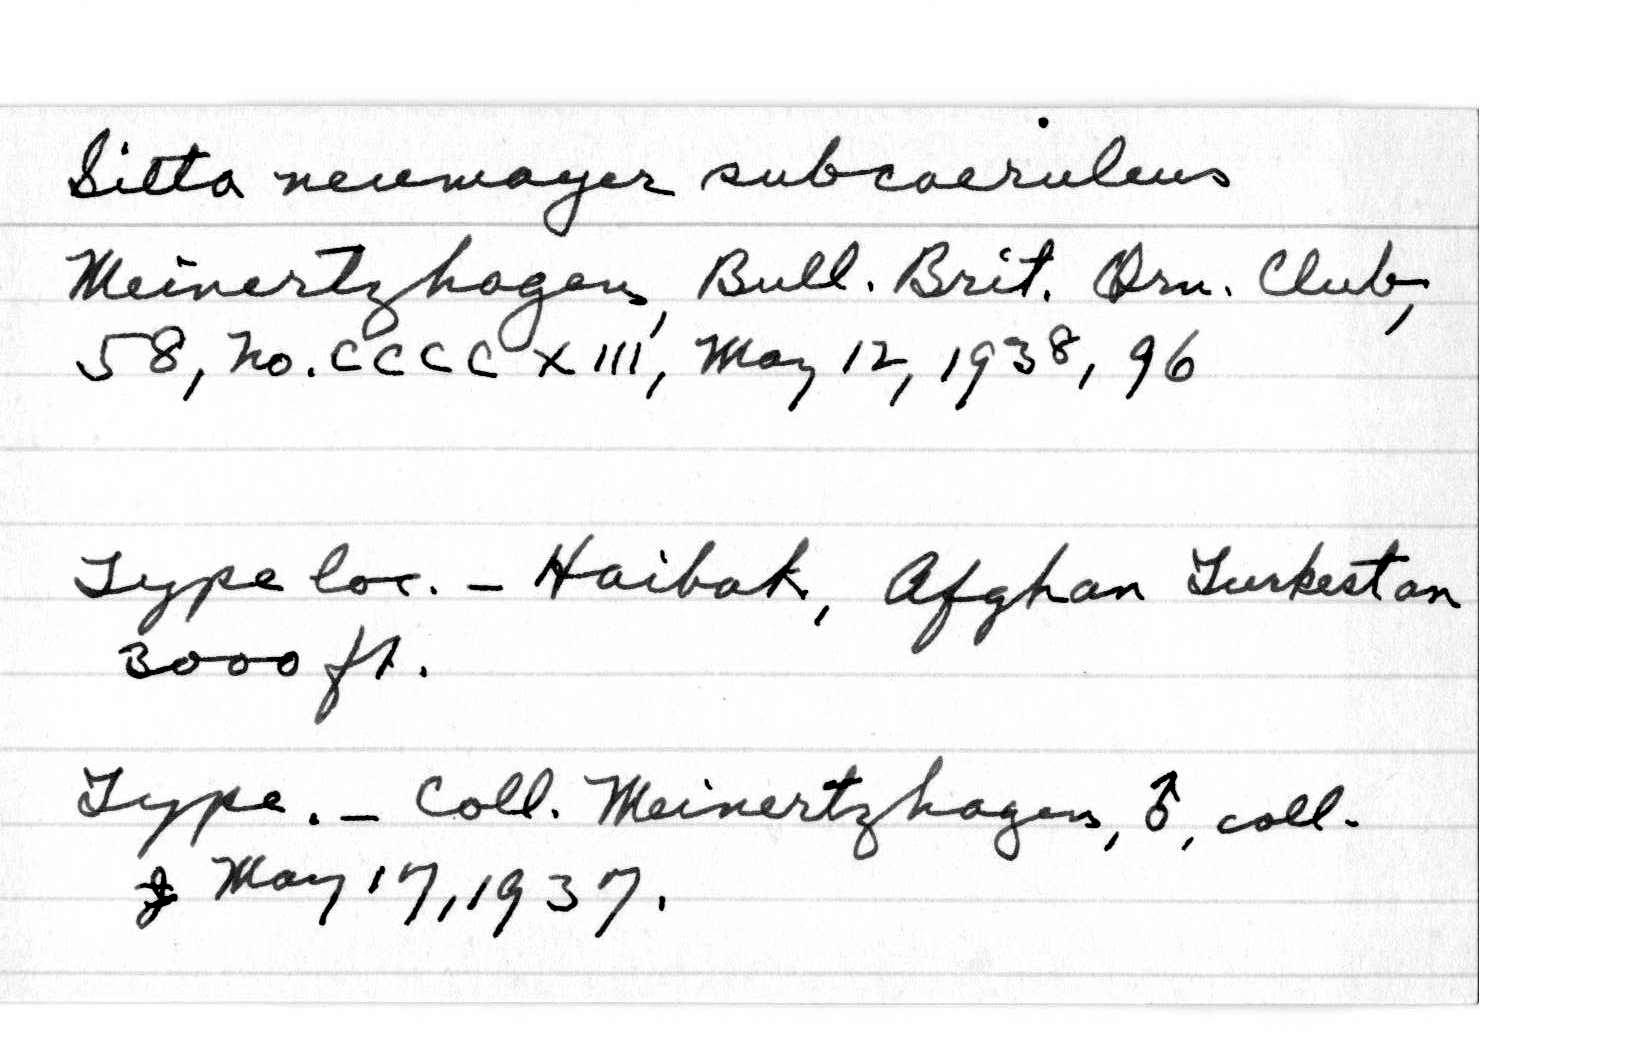 Sitta neumayer subcaeruleus
Meinertzhagen, Bull. Brit. Orn. Club,
58, No. CCCCXIII, May 12, 1938, 96
Type loc. - Haibak, Afghan Turkestan
3000 ft.
Type. - Coll. Meinertzhagen, ♂, coll.
May 17, 1937.